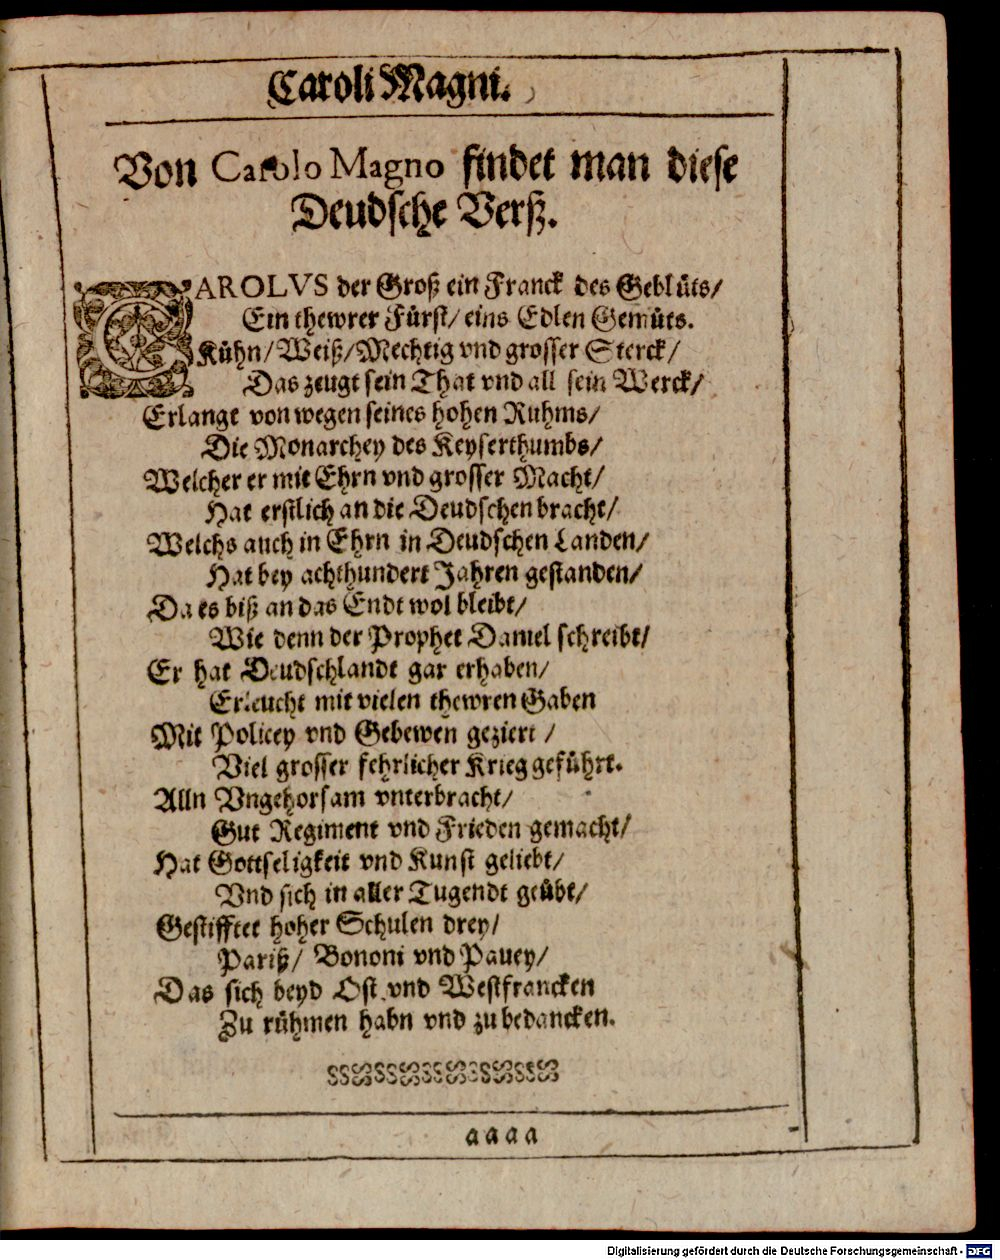 Caroli Magni.
Von Carolo Magno findet man diese
Deudsche Verß.
CAROLVS der Groß ein Franck des Geblüts/
Ein thewrer Fürst/ eins Edlen Gemüts.
Kühn/ Weiß/ Mechtig vnd grosser Sterck/
Das zeugt sein That vnd all sein Werck/
Erlangt von wegen seines hohen Ruhms/
Die Monarchey des Keyserthumbs/
Welcher er mit Ehrn vnd grosser Macht/
Hat erstlich an die Deudschen bracht/
Welchs auch in Ehrn in Deudschen Landen/
Hat bey achthundert Jahren gestanden/
Da es biß an das Endt wol bleibt/
Wie denn der Prophet Daniel schreibt/
Er hat Deudschlandt gar erhaben/
Erleucht mit vielen thewren Gaben
Mit Policey vnd Gebewen geziert /
Viel grosser fehrlicher Krieg geführt.
Alln Vngehorsam vnterbracht/
Gut Regiment vnd Frieden gemacht/
Hat Gottseligkeit vnd Kunst geliebt/
Vnd sich in aller Tugendt geübt/
Gestifftet hoher Schulen drey/
Pariß/ Bononi vnd Pauey/
Das sich beyd Ost vnd Westfrancken
Zu rühmen habn vnd zu bedancken.
aaaa
Digitalisierung gefördert durch die Deutsche Forschungsgemeinschaft - DFG